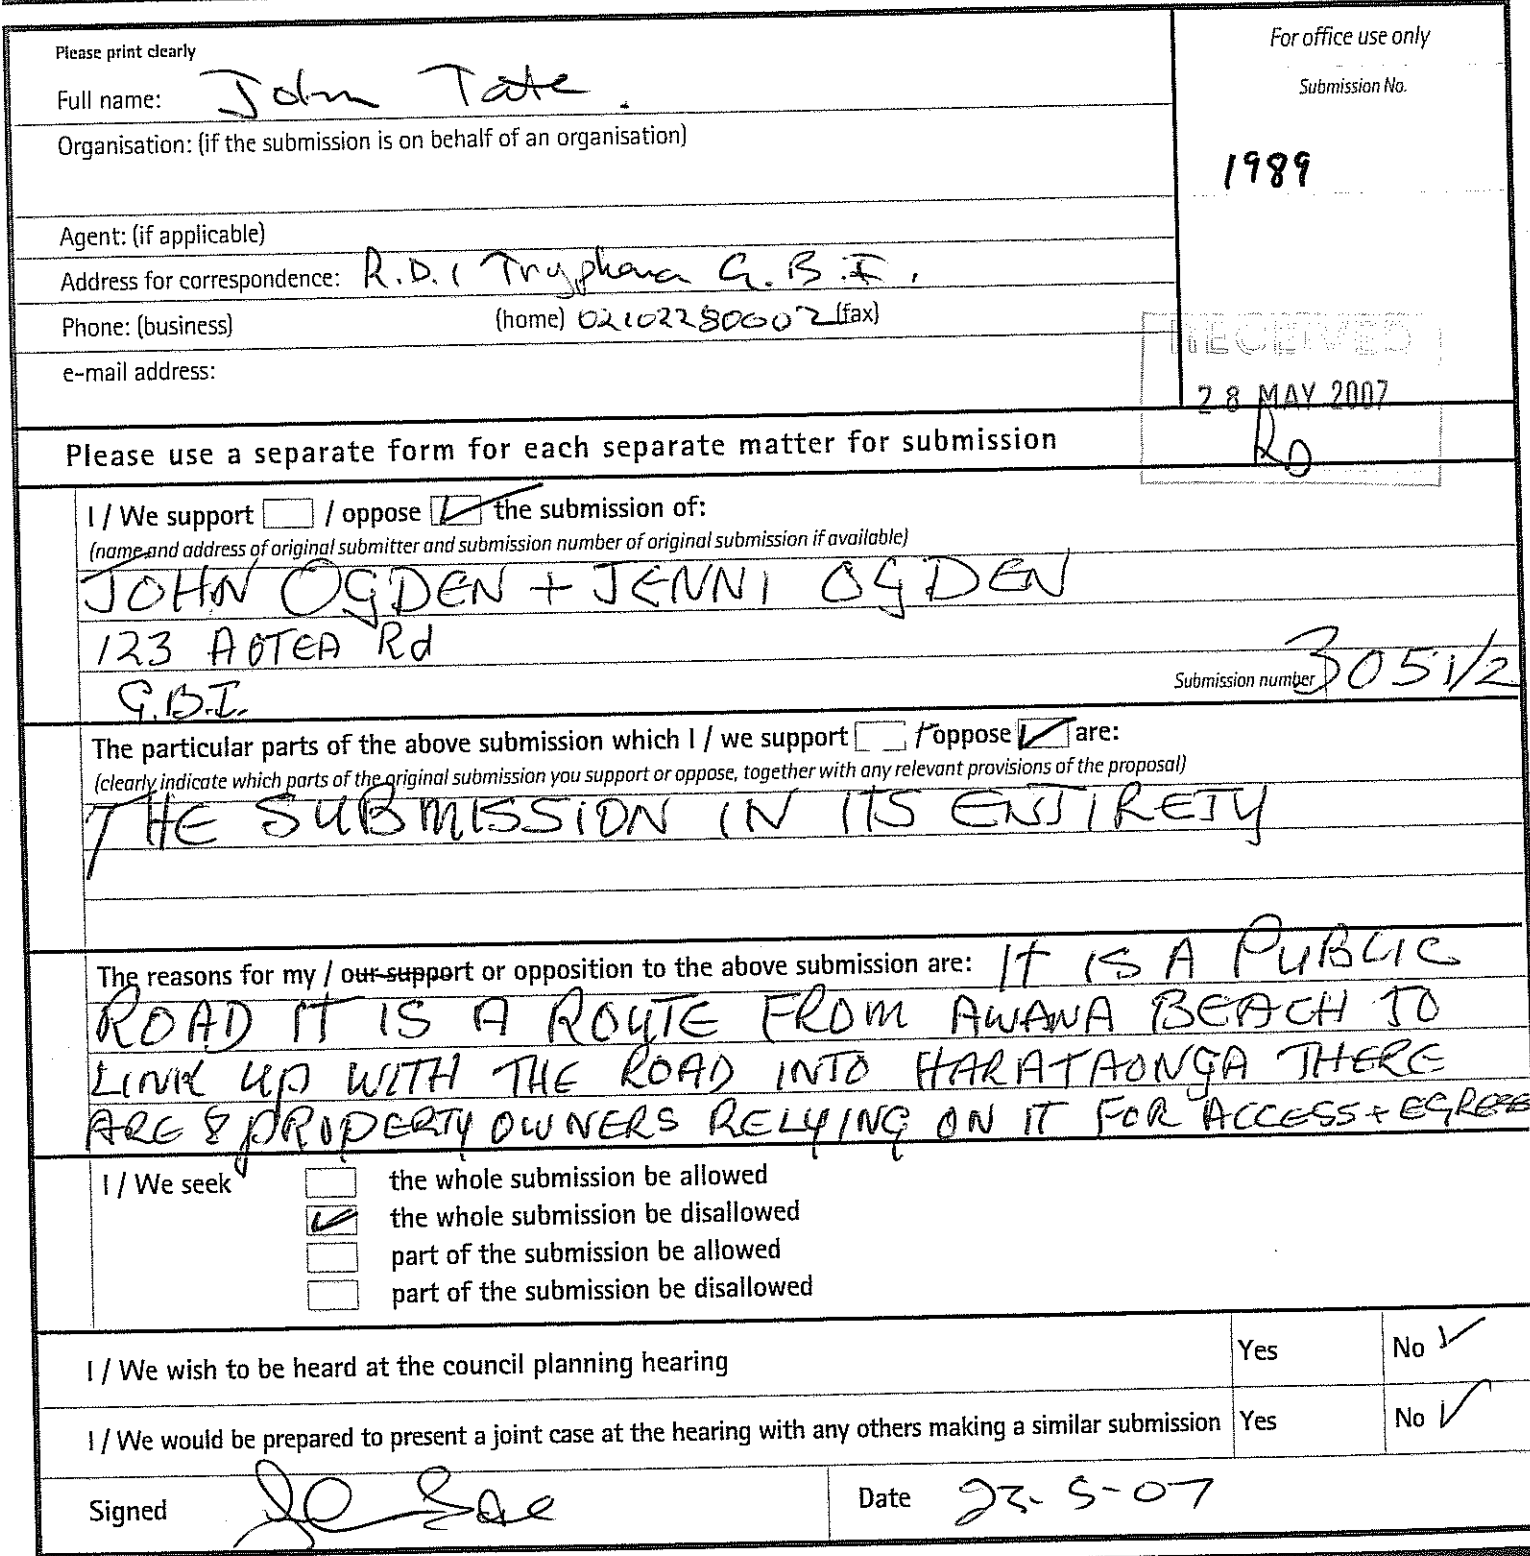 Please print clearly
Full name: John Tate.
For office use only
Submission No.
1989
Organisation: (if the submission is on behalf of an organisation)
Agent: (if applicable)
Address for correspondence: R.D.1 Tryphena G.B.I.
Phone: (business) (home) 02102280002 (fax)
e-mail address:
RECEIVED
28 MAY 2007
RD
Please use a separate form for each separate matter for submission
I / We support / oppose the submission of:
(name and address of original submitter and submission number of original submission if available)
JOHN OGDEN + JENNI OGDEN
123 AOTEA Rd
G.B.I.
Submission number 3051/2
The particular parts of the above submission which I / we support / oppose are:
(clearly indicate which parts of the original submission you support or oppose, together with any relevant provisions of the proposal)
THE SUBMISSION IN ITS ENTIRETY
The reasons for my / our support or opposition to the above submission are: IT IS A PUBLIC
ROAD IT IS A ROUTE FROM AWANA BEACH TO
LINK UP WITH THE ROAD INTO HARATAONGA THERE
ARE 8 PROPERTY OWNERS RELYING ON IT FOR ACCESS + EGRESS
I / We seek
the whole submission be allowed
the whole submission be disallowed
part of the submission be allowed
part of the submission be disallowed
I / We wish to be heard at the council planning hearing Yes No
I / We would be prepared to present a joint case at the hearing with any others making a similar submission Yes No
Signed
Date 23-5-07